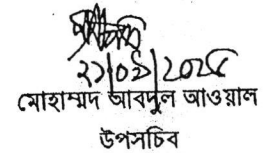 ২১|০৯|2025
মোহাম্মদ আবদুল আওয়াল
উপসচিব